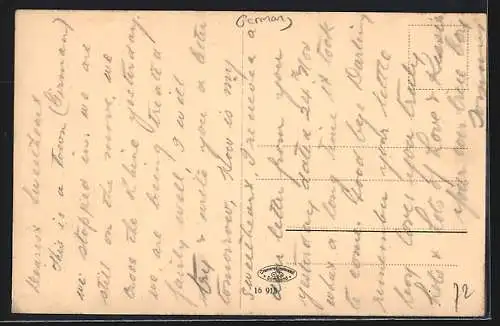 Dearest Sweetheart
This is a town (German)
we stopped in. we are
still on the move, we
cross the Rhine yesterday,
we are being treated
fairly well, I will
try & write you a letter
tomorrow, How is my
sweetheart, I received a
letter from you
yesterday dated 24 Nov
what a long time it took
to come. Good bye Darling
remember your little
boy loves you truly
lots & lots of Love & Kisses
your ever true boy
(German)
16 918
72